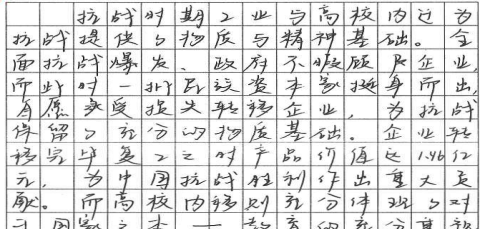 抗战时期工业与高校内迁为
抗战提供了物质与精神基础。全
面抗战爆发，政府不暇顾及企业，
而此时一批民族资本家挺身而出，
自愿承受损失转移企业，为抗战
保留了充分的物质基础。企业转
移完毕复工之时产品价值达1.46亿
元，为中国抗战胜利作出重大贡
献。而高校内移则充分体现了对
国家之本——教育的充分重视